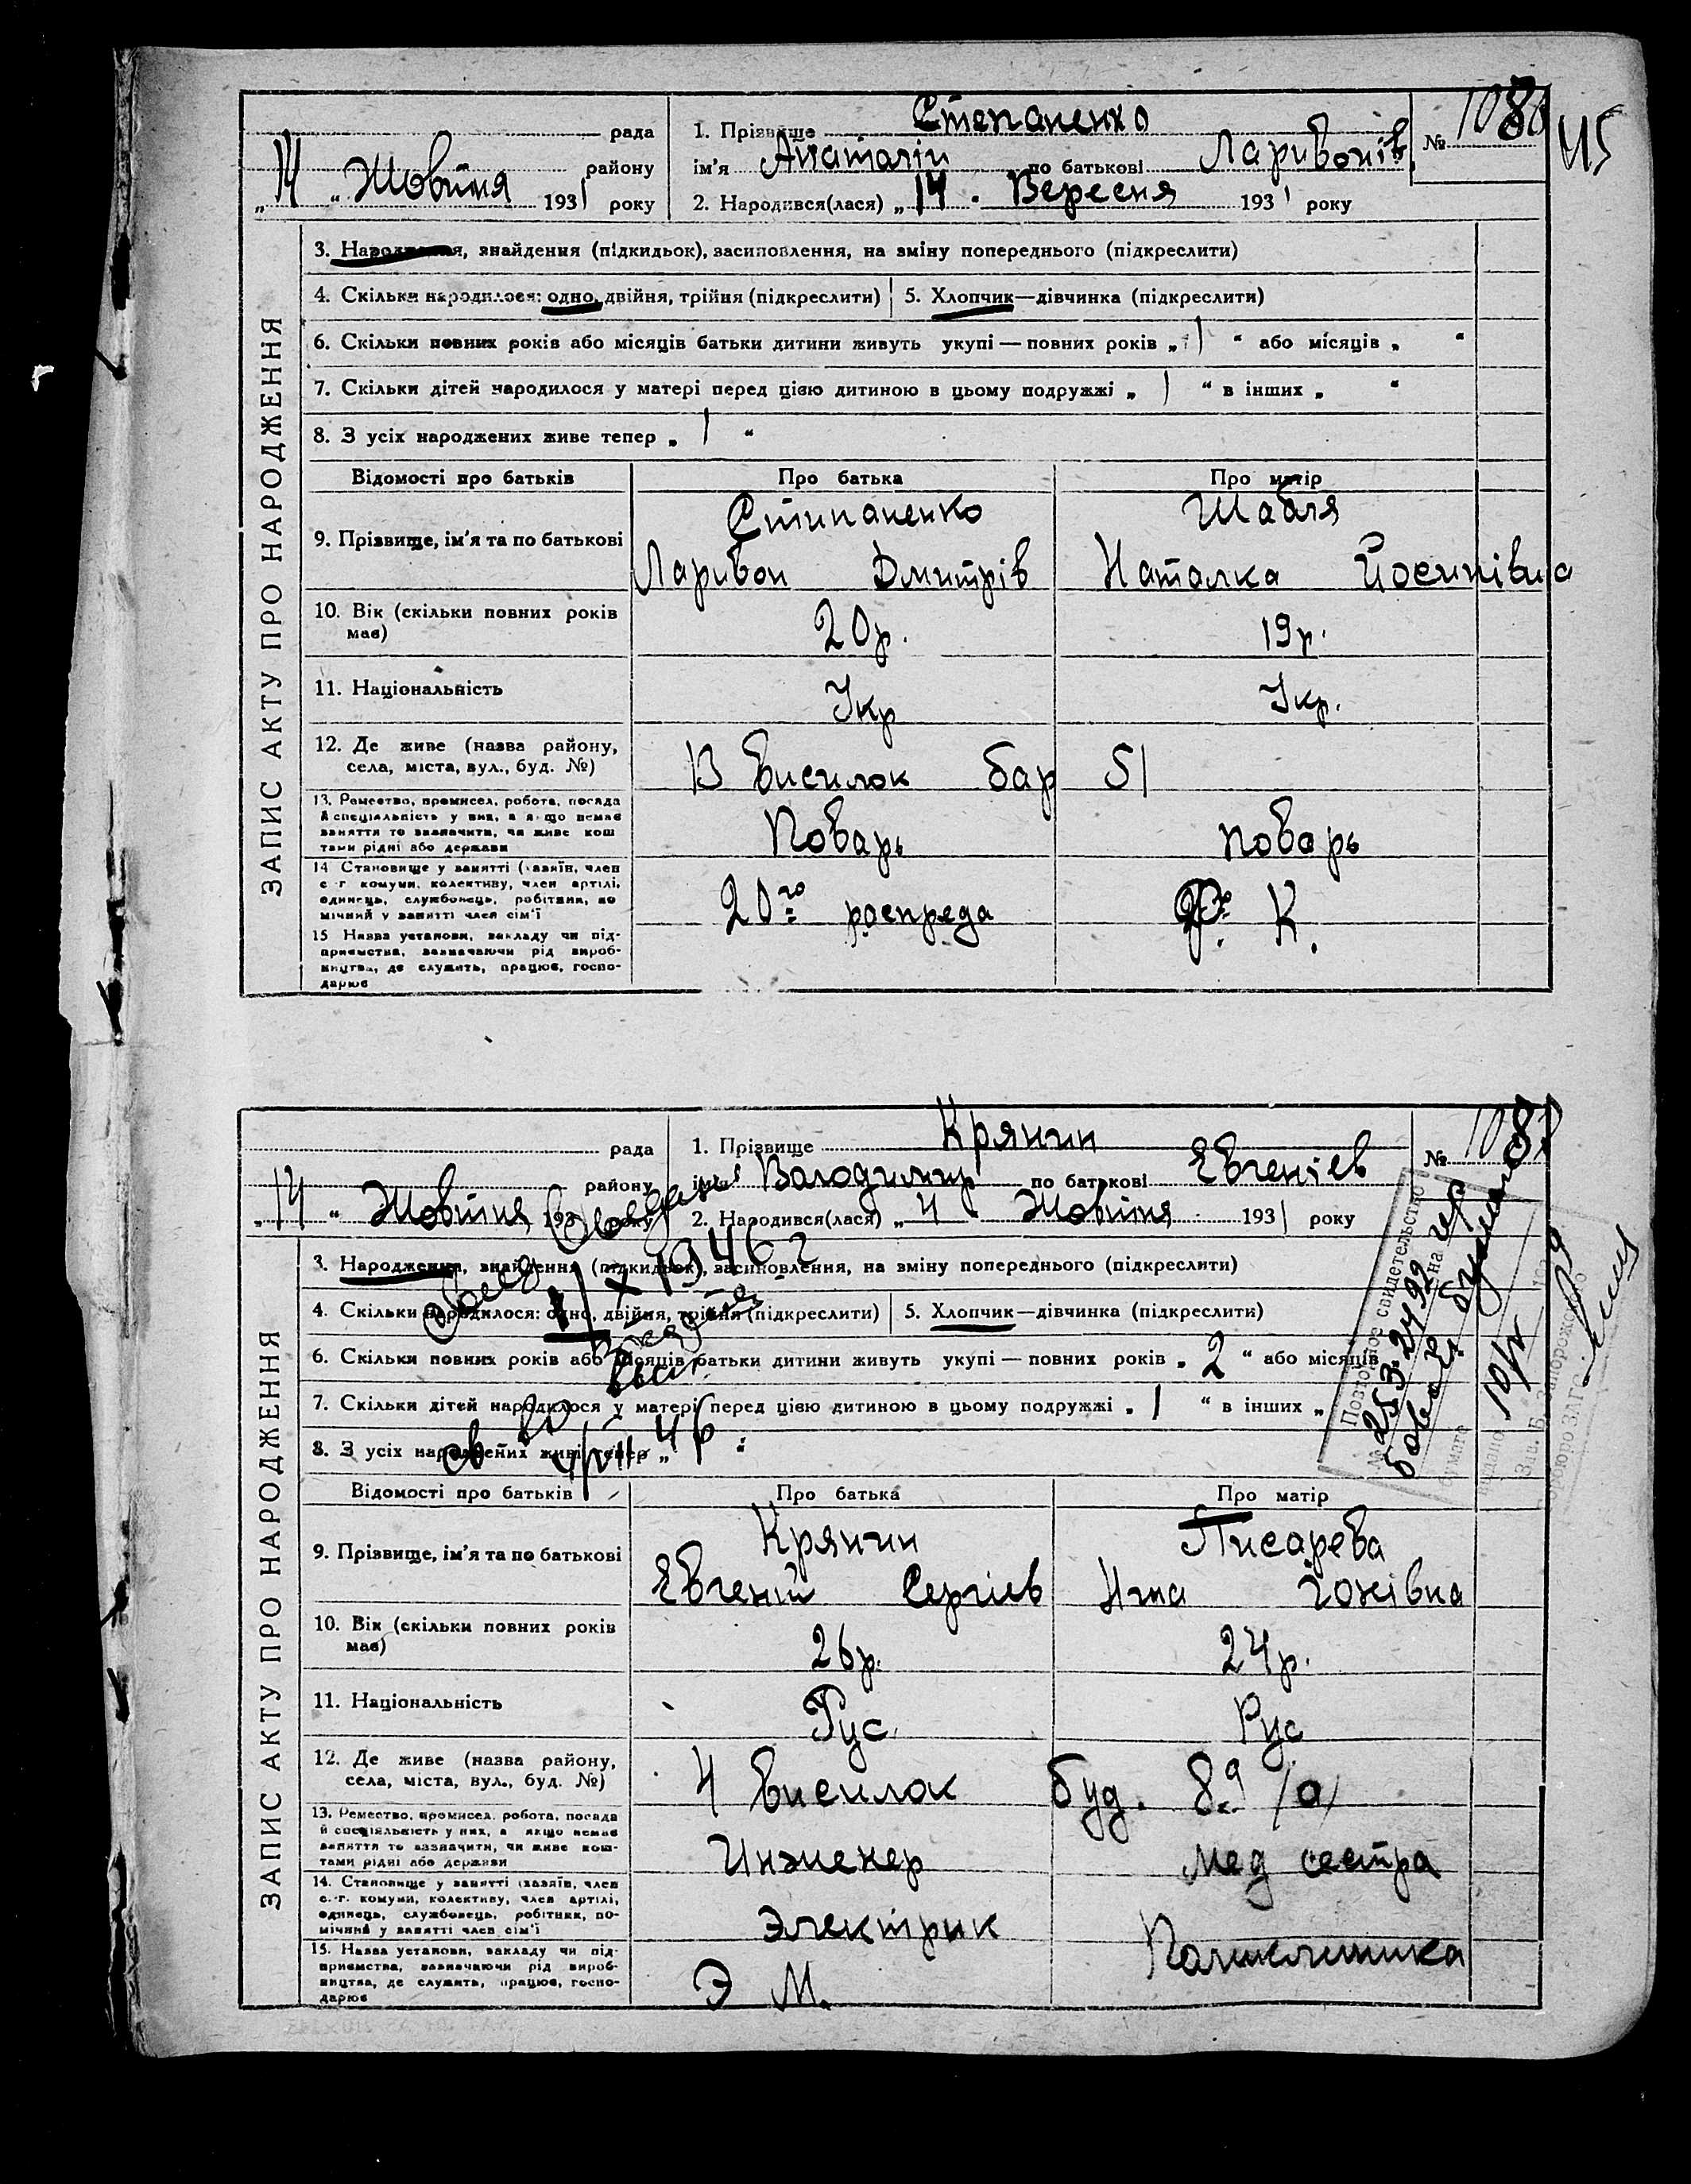 1080
45
рада
1. Прізвище Степаненко
№
району
ім'я Анатолій по батькові Ларивонів
„14“ Жовтня 1931 року
2. Народився(лася) „14. Вересня 1931 року
ЗАПИС АКТУ ПРО НАРОДЖЕННЯ
3. Народження, знайдення (підкидьок), засиновлення, на зміну попереднього (підкреслити)
4. Скільки народилося: одно, двійня, трійня (підкреслити)
5. Хлопчик—дівчинка (підкреслити)
6. Скільки повних років або місяців батьки дитини живуть укупі — повних років „1“ або місяців „ “
7. Скільки дітей народилося у матері перед цією дитиною в цьому подружжі „1“ в інших „ “
8. З усіх народжених живе тепер „1“
Відомості про батьків
Про батька
Про матір
9. Прізвище, ім'я та по батькові
Стипаненко
Ларивон Дмитрів
Шабля
Наталка Йосипівна
10. Вік (скільки повних років має)
20р.
19р.
11. Національність
Укр
Укр.
12. Де живе (назва району, села, міста, вул., буд. №)
13 висилок бар 51
13. Ремество, промисел, робота, посада
й спеціальність у них, а якщо немає
заняття то зазначити, чи живе кош
тами рідні або держави
Поварь
поварь
14 Становище у занятті (хазяїн, член
с.-г. комуни, колективу, член артілі,
одинець, службовець, робітник, по
мічний у занятті член сім'ї
20го роспреда
К.
15 Назва установи, закладу чи під-
приємства, зазначаючи рід вироб-
ництва, де служить, працює, госпо-
дарює
1081
рада
1. Прізвище Крянгин
№
району
ім'я Володимир по батькові Евгеніев
„14“ Жовтня 193 року
2. Народився(лася) „4. Жовтня 1931 року
ЗАПИС АКТУ ПРО НАРОДЖЕННЯ
3. Народження, знайдення (підкидьок), засиновлення, на зміну попереднього (підкреслити)
1946 г
4. Скільки народилося: одно, двійня, трійня (підкреслити)
5. Хлопчик—дівчинка (підкреслити)
6. Скільки повних років або місяців батьки дитини живуть укупі — повних років „2“ або місяців
7. Скільки дітей народилося у матері перед цією дитиною в цьому подружжі „1“ в інших „
8. З усіх народжених живе тепер „
46
Повторное свидетельство
№ на
бумаге
Выдано
Запорожского
бюро ЗАГС
Відомості про батьків
Про батька
Про матір
9. Прізвище, ім'я та по батькові
Крянгин
Евгений Сергіев
Писарева
10. Вік (скільки повних років має)
26р.
24р.
11. Національність
Рус.
Рус
12. Де живе (назва району, села, міста, вул., буд. №)
4 висилок буд. 89 /а/
13. Ремество, промисел, робота, посада
й спеціальність у них, а якщо немає
заняття то зазначити, чи живе кош-
тами рідні або держави
Инженер
мед сестра
14. Становище у занятті (хазяїн, член
с.-г. комуни, колективу, член артілі,
одинець, службовець, робітник, по-
мічний у занятті член сім'ї
Электрик
Поликлиника
15. Назва установи, закладу чи під-
приємства, зазначаючи рід вироб-
ництва, де служить, працює, госпо-
дарює
Э М.